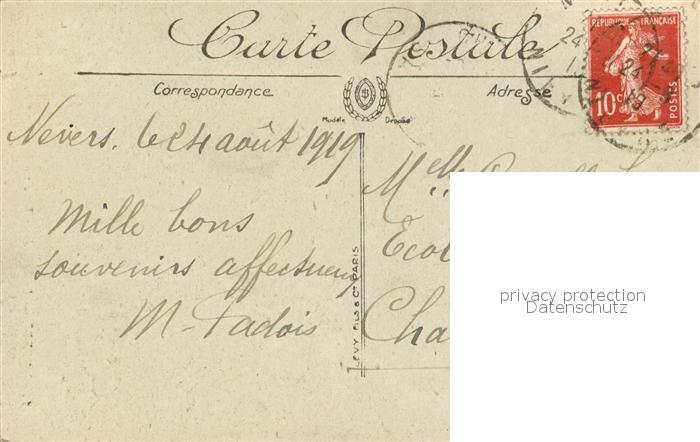 Carte Postale
Correspondance
Adresse
Modèle Déposé
REPUBLIQUE FRANÇAISE
10c POSTES
24
Nevers. le 24 août 1919
Mille bons
souvenirs affectueux
M. Tadois
Melle
LEVY FILS & Cie PARIS
privacy protection
Datenschutz